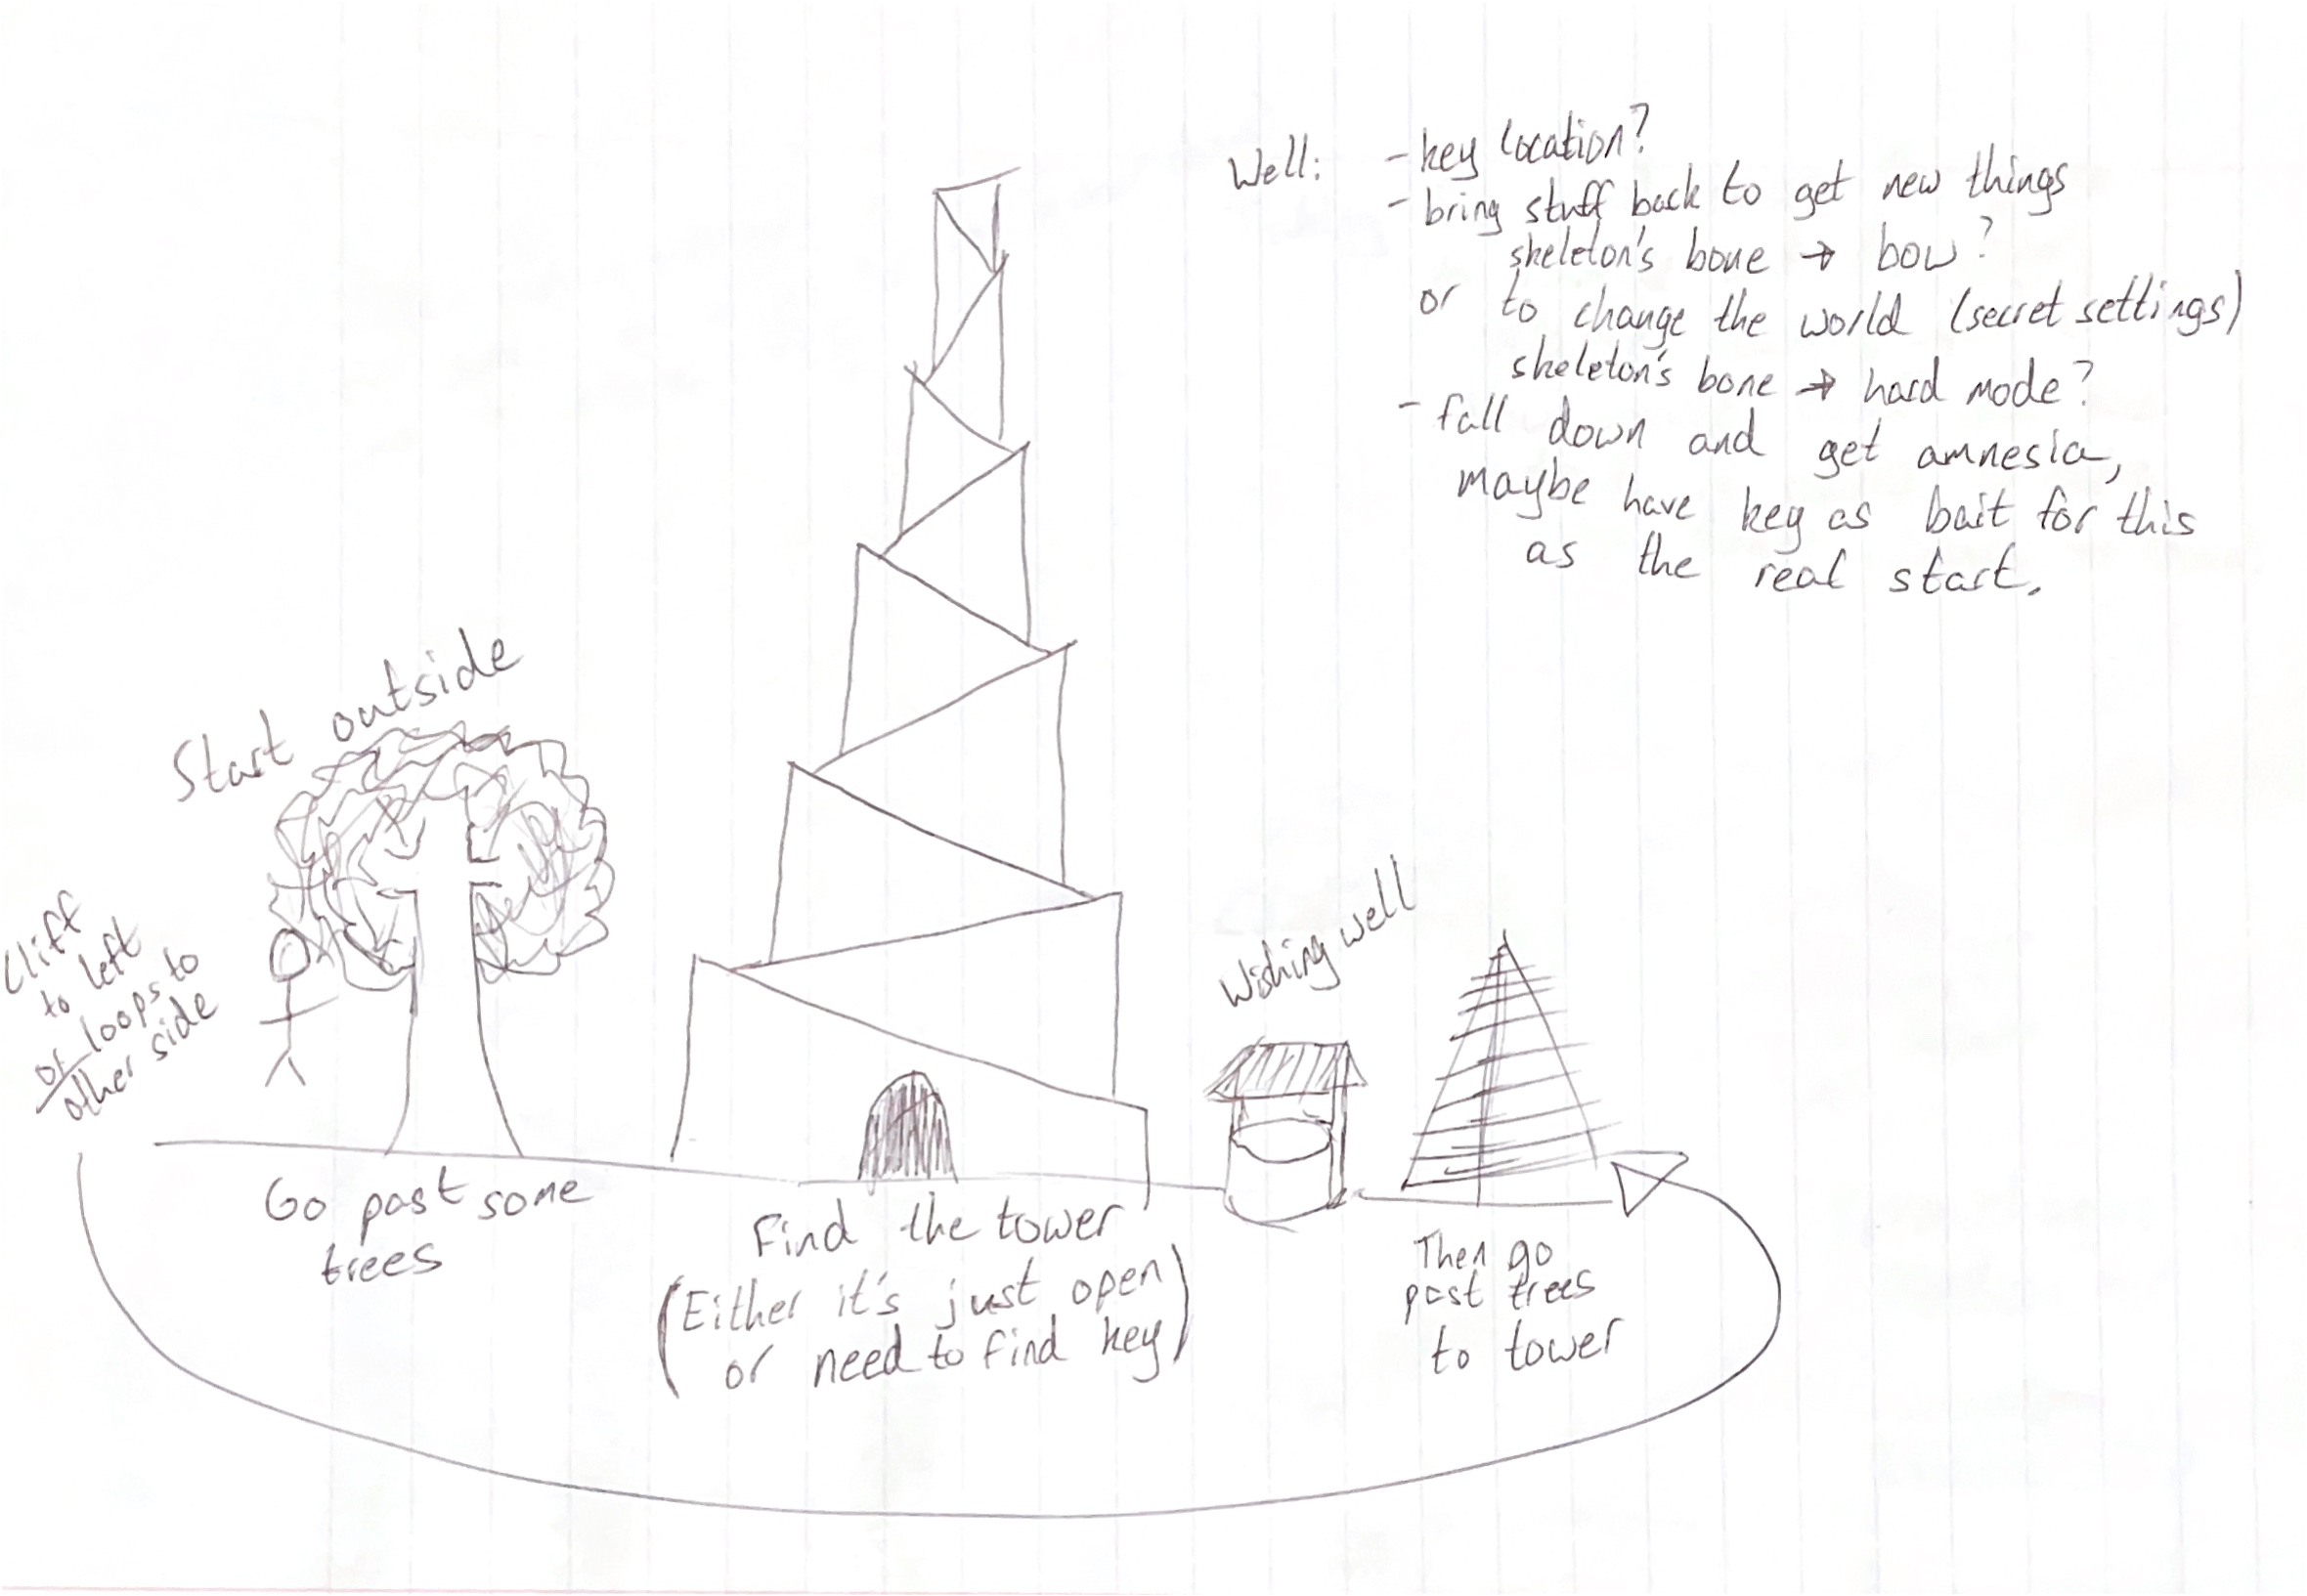 Well: - key location?
- bring stuff back to get new things
skeleton's bone → bow?
or to change the world (secret settings)
skeleton's bone → hard mode?
- fall down and get amnesia,
maybe have key as bait for this
as the real start.
Start outside
Cliff
to left
or loops to
other side
Wishing well
Go past some
trees
Find the tower
(Either it's just open
or need to find key)
Then go
past trees
to tower